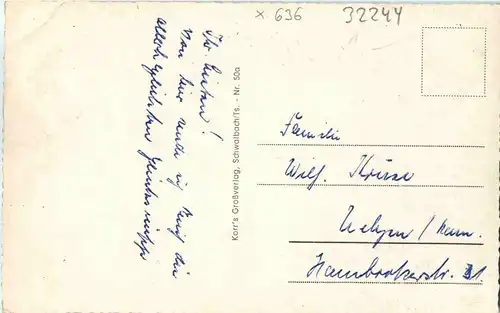 x 636
32244
Ihr Lieben!
Von hier will ich Euch die
allerherzlichsten
Korr's Großverlag, Schwalbach/Ts. - Nr. 50a
Familie
Wilh. Kruse
Uelzen / Hann.